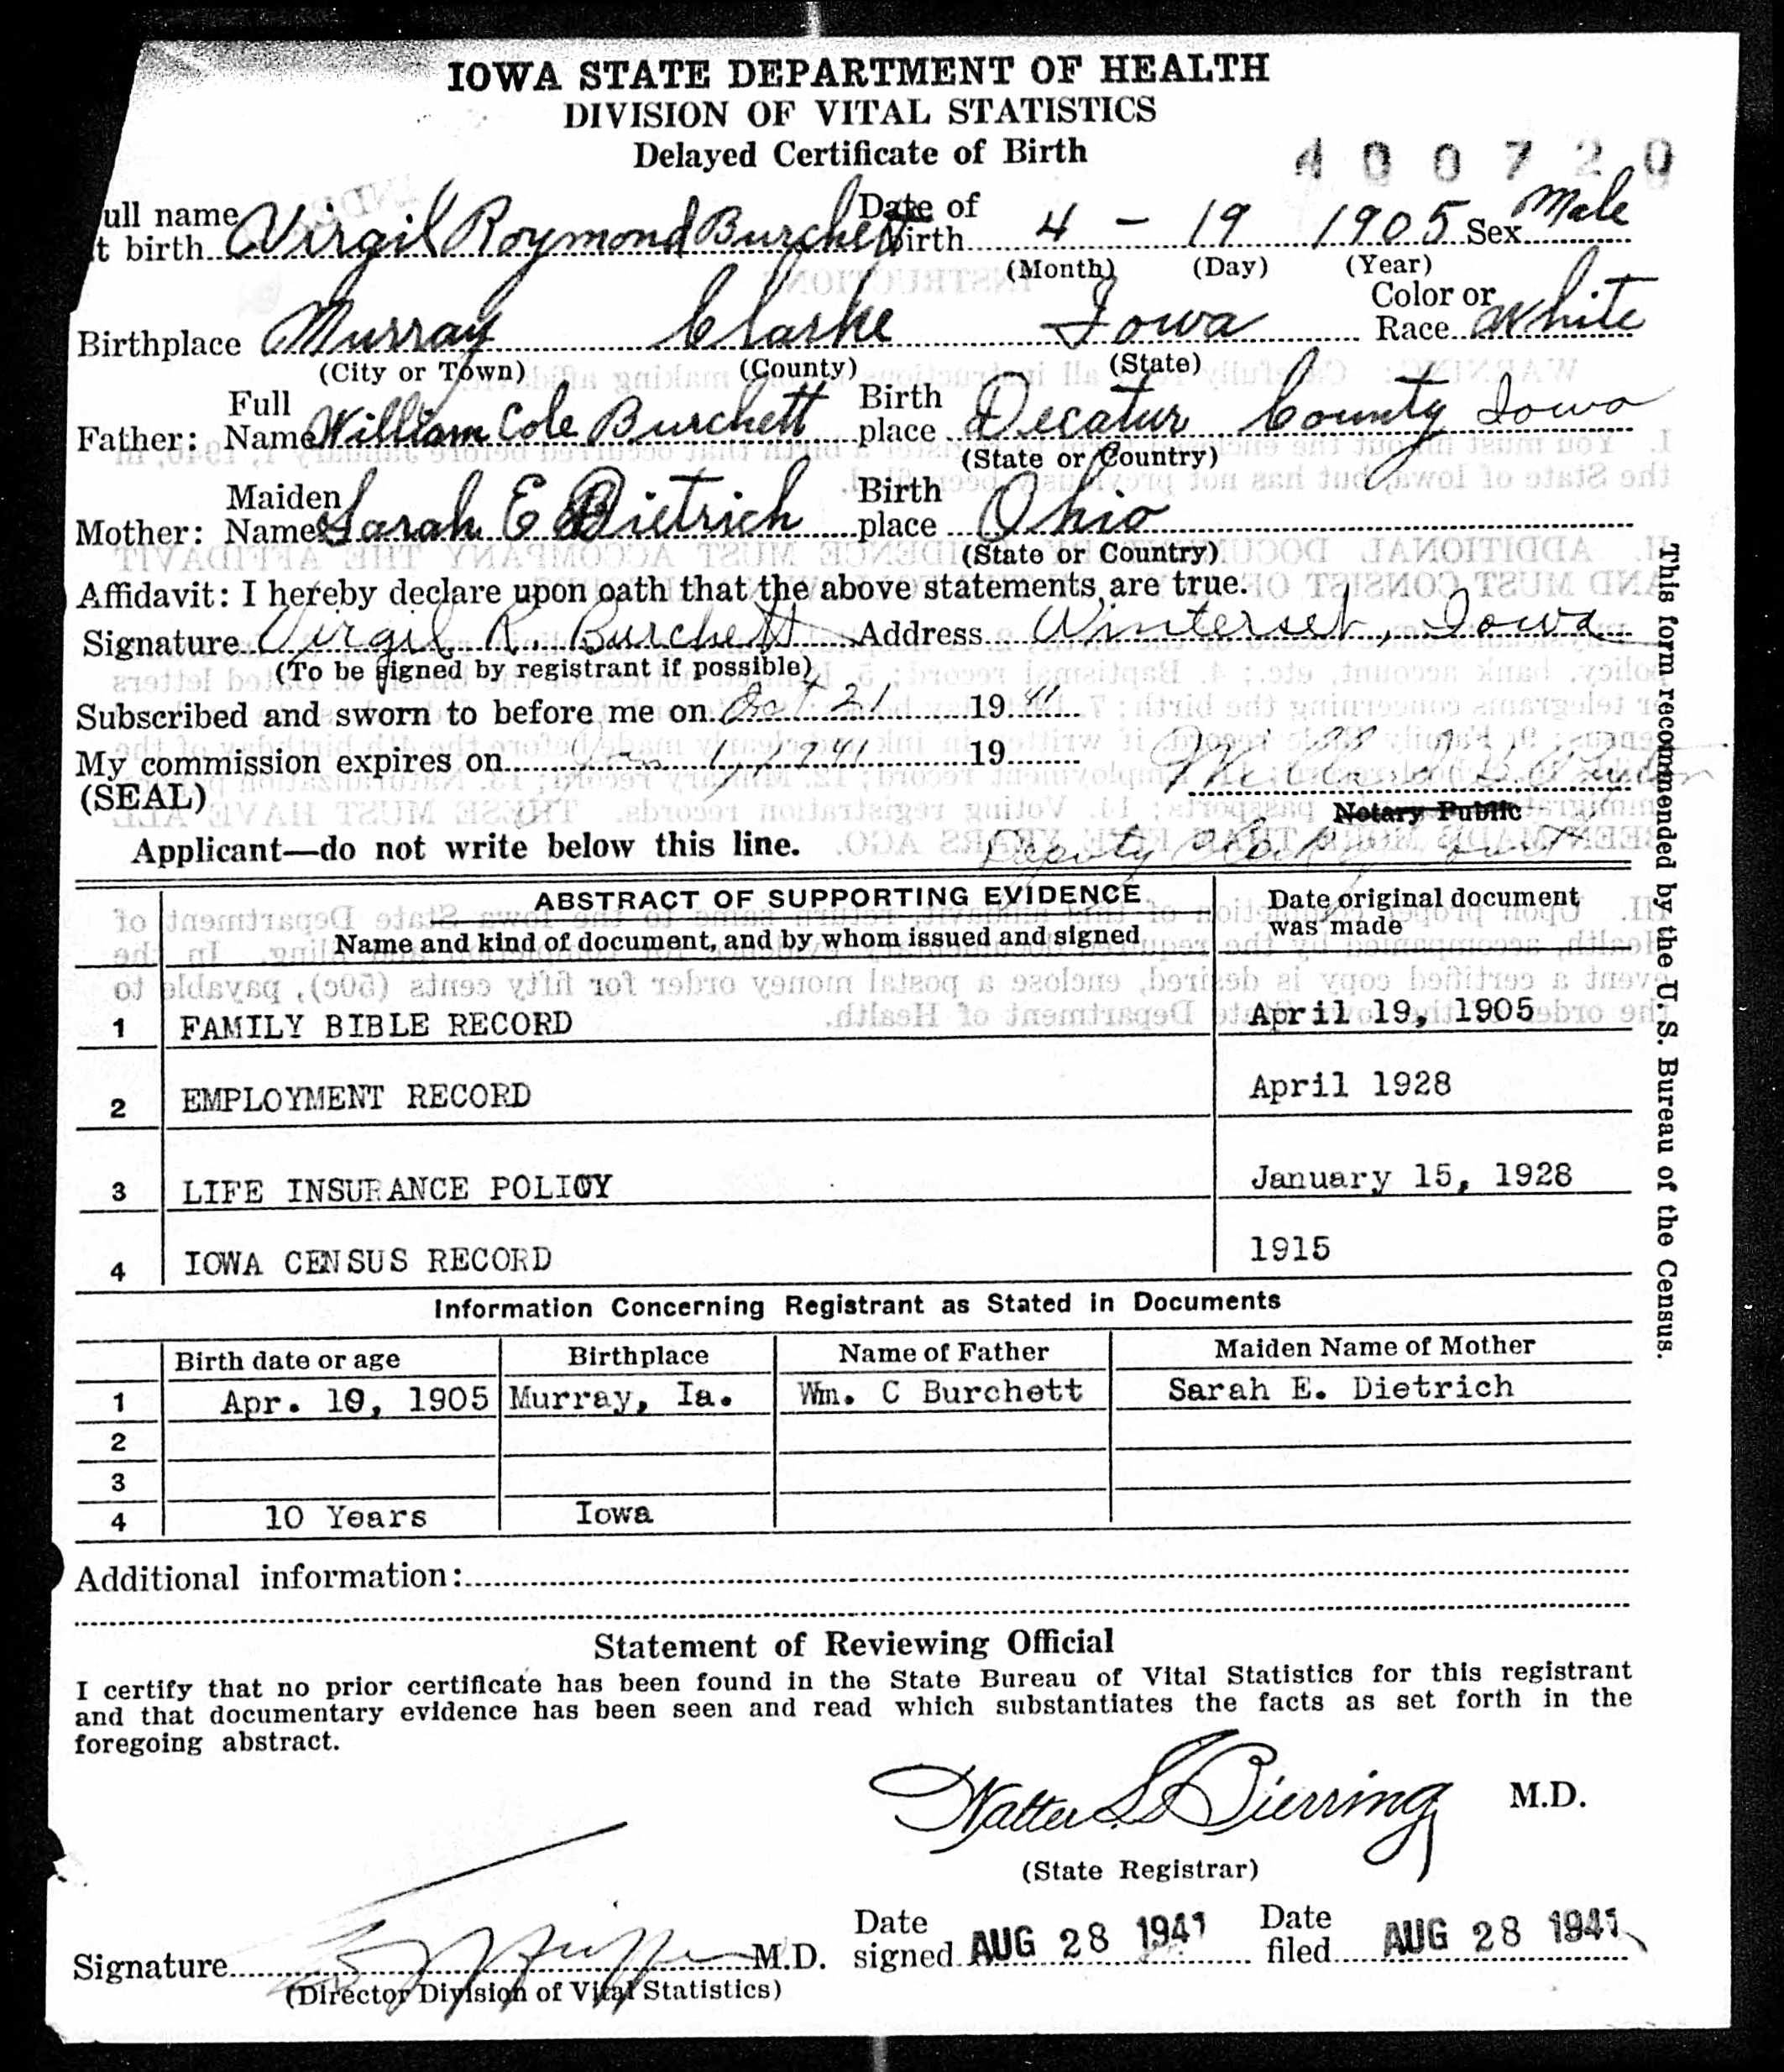 IOWA STATE DEPARTMENT OF HEALTH
DIVISION OF VITAL STATISTICS
Delayed Certificate of Birth
400720
ull name
t birth Virgil Roymond Burchett Date of Birth 4 - 19 1905 Sex Male
(Month) (Day) (Year)
Birthplace Murray Clarke Iowa Color or Race White
(City or Town) (County) (State)
Father: Full Name William Cole Burchett Birth place Decatur County Iowa
(State or Country)
Mother: Maiden Name Sarah E Dietrich Birth place Ohio
(State or Country)
Affidavit: I hereby declare upon oath that the above statements are true.
Signature Virgil R. Burchett Address Winterset, Iowa
(To be signed by registrant if possible)
Subscribed and sworn to before me on 21 19 41
My commission expires on Jan 1, 1941 19
(SEAL)
Notary Public
Applicant—do not write below this line. Deputy Clerk
ABSTRACT OF SUPPORTING EVIDENCE
Name and kind of document, and by whom issued and signed
Date original document was made
1 FAMILY BIBLE RECORD April 19, 1905
2 EMPLOYMENT RECORD April 1928
3 LIFE INSURANCE POLICY January 15, 1928
4 IOWA CENSUS RECORD 1915
Information Concerning Registrant as Stated in Documents
Birth date or age Birthplace Name of Father Maiden Name of Mother
1 Apr. 19, 1905 Murray, Ia. Wm. C Burchett Sarah E. Dietrich
2
3
4 10 Years Iowa
Additional information:
Statement of Reviewing Official
I certify that no prior certificate has been found in the State Bureau of Vital Statistics for this registrant
and that documentary evidence has been seen and read which substantiates the facts as set forth in the
foregoing abstract.
Walter L Bierring M.D.
(State Registrar)
Signature M.D. Date signed AUG 28 1941 Date filed AUG 28 1941
(Director Division of Vital Statistics)
This form recommended by the U. S. Bureau of the Census.